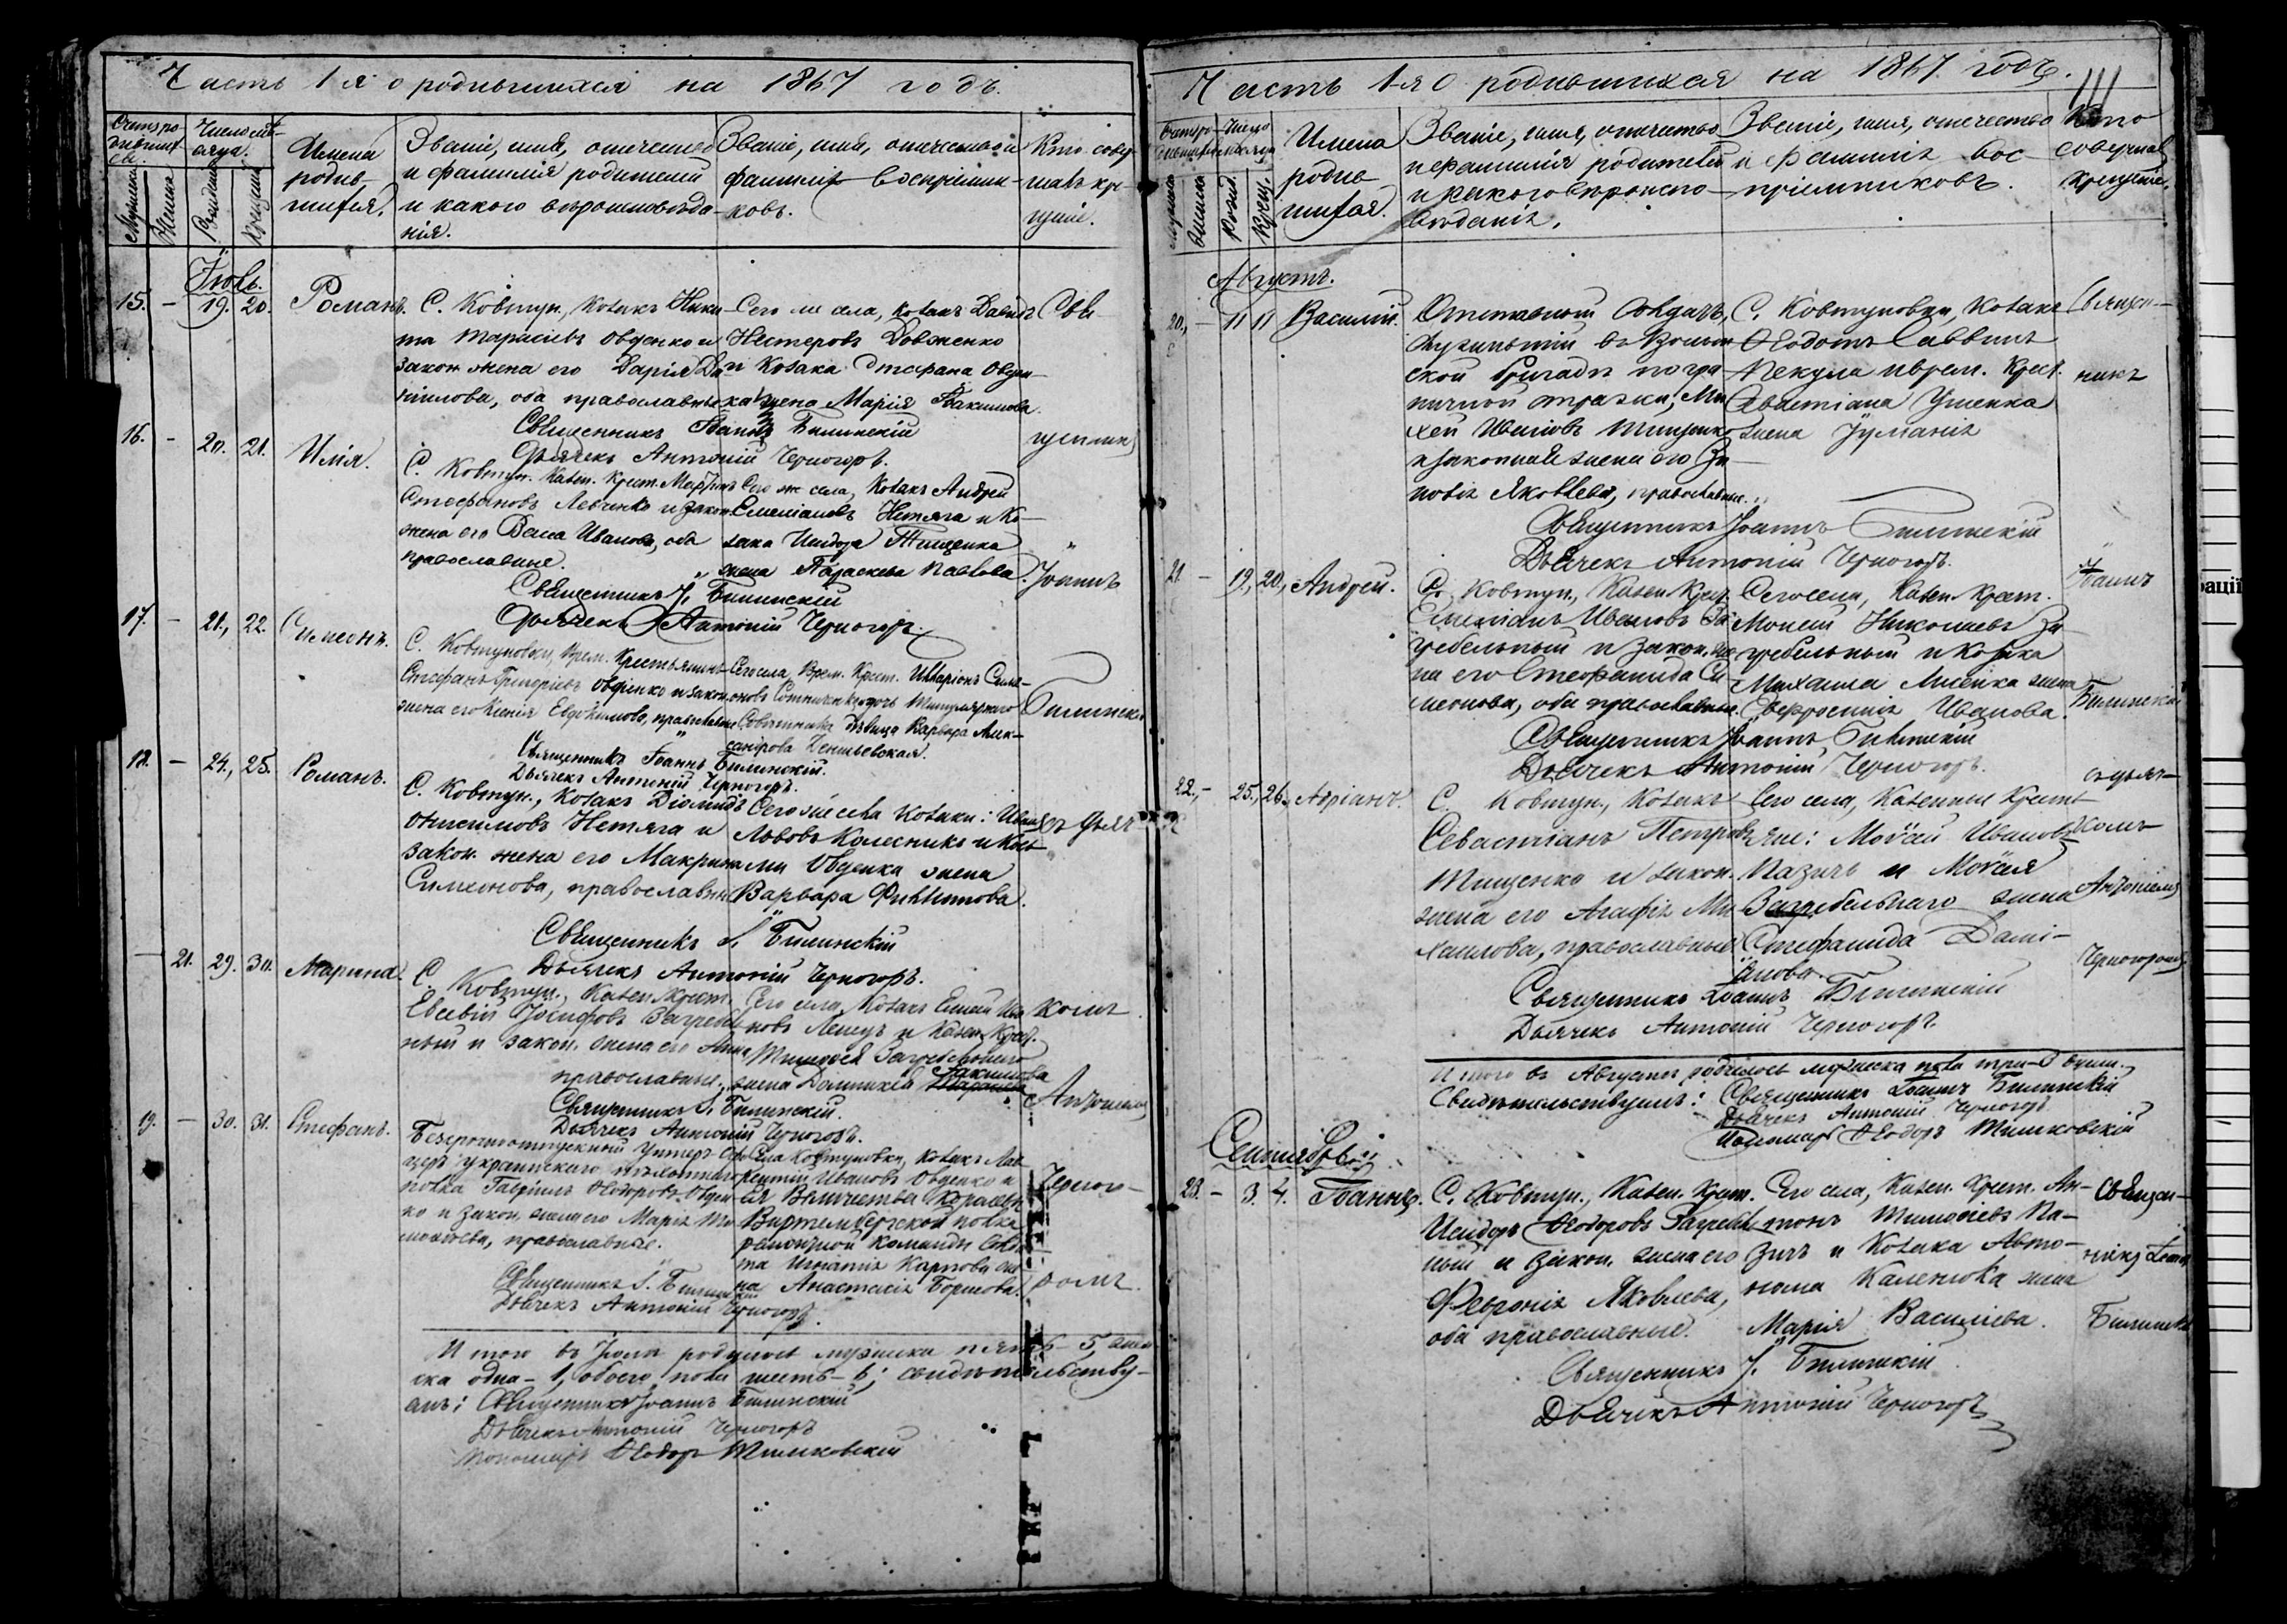 Часть 1я о родившихся на 1867 годъ.
Счетъ родившихся.
Число месяца.
Имена родившихся.
Званіе, имя, отечество
и фамилія родителей
и какого вероисповеда-
нія.
Званіе, имя, отечество и
фамилія воспріемни-
ковъ.
Кто совер-
шалъ кре-
щеніе.
Мужска
Женска
Рожден.
Крещен.
Іюль.
15. – 19. 20. Романъ.
С. Ковтун., козакъ Ники-
та Тарасіевъ Овденко и
закон. жена его Дарія Да-
ніилова, оба православные
Сего же села, козакъ Давидъ
Нестеровъ Довженко
и козака Стефана Овден-
ка жена Марія Іоакимова.
Священникъ Іоаннъ Билинскій
Дьячекъ Антоній Черногоръ.
16. – 20. 21. Илія.
С. Ковтун. Казен. Крест. Мартинъ
Стефановъ Левченко и закон.
жена его Васса Иванова, оба
православные.
Сего же села, козакъ Андрей
Емеліановъ Нетяга и ко-
зака Исидора Тищенка
жена Параскева Павлова.
Священникъ І. Билинскій
Дьячекъ Антоній Черногоръ.
17. – 21. 22. Симеонъ.
С. Ковтуновки, Врем. Крестьянинъ
Стефанъ Григоріевъ Овденко и закон.
жена его Ксенія Евдокимова, православные
Сего села, Врем. Крест. Иларіонъ Симе-
оновъ и дочь Титулярнаго
Советника девица Варвара Алек-
сандрова
Священникъ Іоаннъ Билинскій.
Дьячекъ Антоній Черногоръ.
18. – 24. 25. Романъ.
С. Ковтун., козакъ Діомидъ
Онисимовъ Нетяга и
закон. жена его Макрина
Симеонова, православные
Сего же села козаки: Иванъ
Львовъ Колесникъ и
Овденка жена
Варвара Филипова.
Священникъ І. Билинскій
Дьячекъ Антоній Черногоръ.
– 21. 29. 30. Марина.
С. Ковтун., Казен. Крест.
Евсевій Іосифовъ Загребель-
ный и закон. жена его Анна
православные.
Сего села, козакъ Елисей Ива-
новъ и Казен. Крест.
Тимофея Загребельнаго
жена Домникія Іакимова
Священникъ І. Билинскій.
Дьячекъ Антоній Черногоръ.
19. – 30. 31. Стефанъ.
Безсрочноотпускный Унтеръ-Офи-
церъ Украинскаго
полка Гавріилъ Ѳеодоровъ Овден-
ко и закон. жена его Марія Ти-
моѳеева, православные.
Села Ковтуновки, козакъ Лав-
рентій Ивановъ Овденко и
Ея Величества Королевы
Виртембергской полка
команды
Игнатія Карпова же-
на Анастасія
Священникъ І. Билинскій
Дьячекъ Антоній Черногоръ.
Священ-
никъ
Іоаннъ
Билинскій
съ дьяч-
комъ
Антоніемъ
Черного-
ромъ.
Итого въ Іюле родилось мужска пять – 5, жен-
ска одна – 1, обоего пола шесть – 6; свидетельству-
емъ: Священникъ Іоаннъ Билинскій
Дьячекъ Антоній Черногоръ
Пономарь Ѳеодоръ Тимковскій
Часть 1я о родившихся на 1867 годъ.
111
Имена родившихся.
Званіе, имя, отечество
и фамилія родителей
и какого вероиспо-
веданія.
Званіе, имя, отечество
и фамилія вос-
пріемниковъ.
Кто
совершалъ
крещеніе.
Августъ.
20. – 11 11 Василій.
Отставный Солдатъ,
служившій въ
ской бригаде погра-
ничной стражи, Ми-
хей Ивановъ Тищенко
и законная жена его Зи-
новія Яковлева, православные.
С. Ковтуновки, козакъ
Ѳеодотъ Саввинъ
Пекула и врем. Крест.
Севастіана Ущенка
жена Іуліанія
Священникъ Іоаннъ Билинскій
Дьячекъ Антоній Черногоръ.
21 – 19, 20, Андрей.
С. Ковтун., Казен. Крест.
Емеліанъ Ивановъ За-
гребельный и закон. же-
на его Стефанида Си-
меонова, оба православные.
Сего села, Казен. Крест.
Моисей Николаевъ За-
гребельный и козака
Михаила Лисенка жена
Евфросинія Иванова.
Священникъ Іоаннъ Билинскій
Дьячекъ Антоній Черногоръ.
22. – 25, 26. Адріанъ.
С. Ковтун., козакъ
Севастіанъ Петровъ
Тищенко и закон.
жена его Агафія Ми-
хаилова, православные
Сего села, Казенные Крестья-
не: Моѵсей Ивановъ
Пазичъ и Моѵсея
Загребельнаго жена
Стефанида Дамі-
анова.
Священникъ Іоаннъ Билинскій
Дьячекъ Антоній Черногоръ.
Итого въ Августе родилось мужска пола три – 3 души.
Свидетельствуемъ: Священникъ Іоаннъ Билинскій
Дьячекъ Антоній Черногоръ
Пономарь Ѳеодоръ Тимковскій
Священ-
никъ
Іоаннъ
Билинскій
съ дьяч-
комъ
Антоніемъ
Черногоромъ
Сентябрь
23. – 3. 4. Іоаннъ.
С. Ковтун., Казен. Крест.
Исидоръ Ѳеодоровъ Загребель-
ный и закон. жена его
Февронія Яковлева,
оба православные.
Сего села, Казен. Крест. Ан-
тонъ Тимоѳеевъ Па-
зичъ и козака Авто-
нома Каленюка жена
Марія Василіева.
Священ-
никъ Іоаннъ
Билинскій
Священникъ І. Билинскій
Дьячекъ Антоній Черногоръ
рації